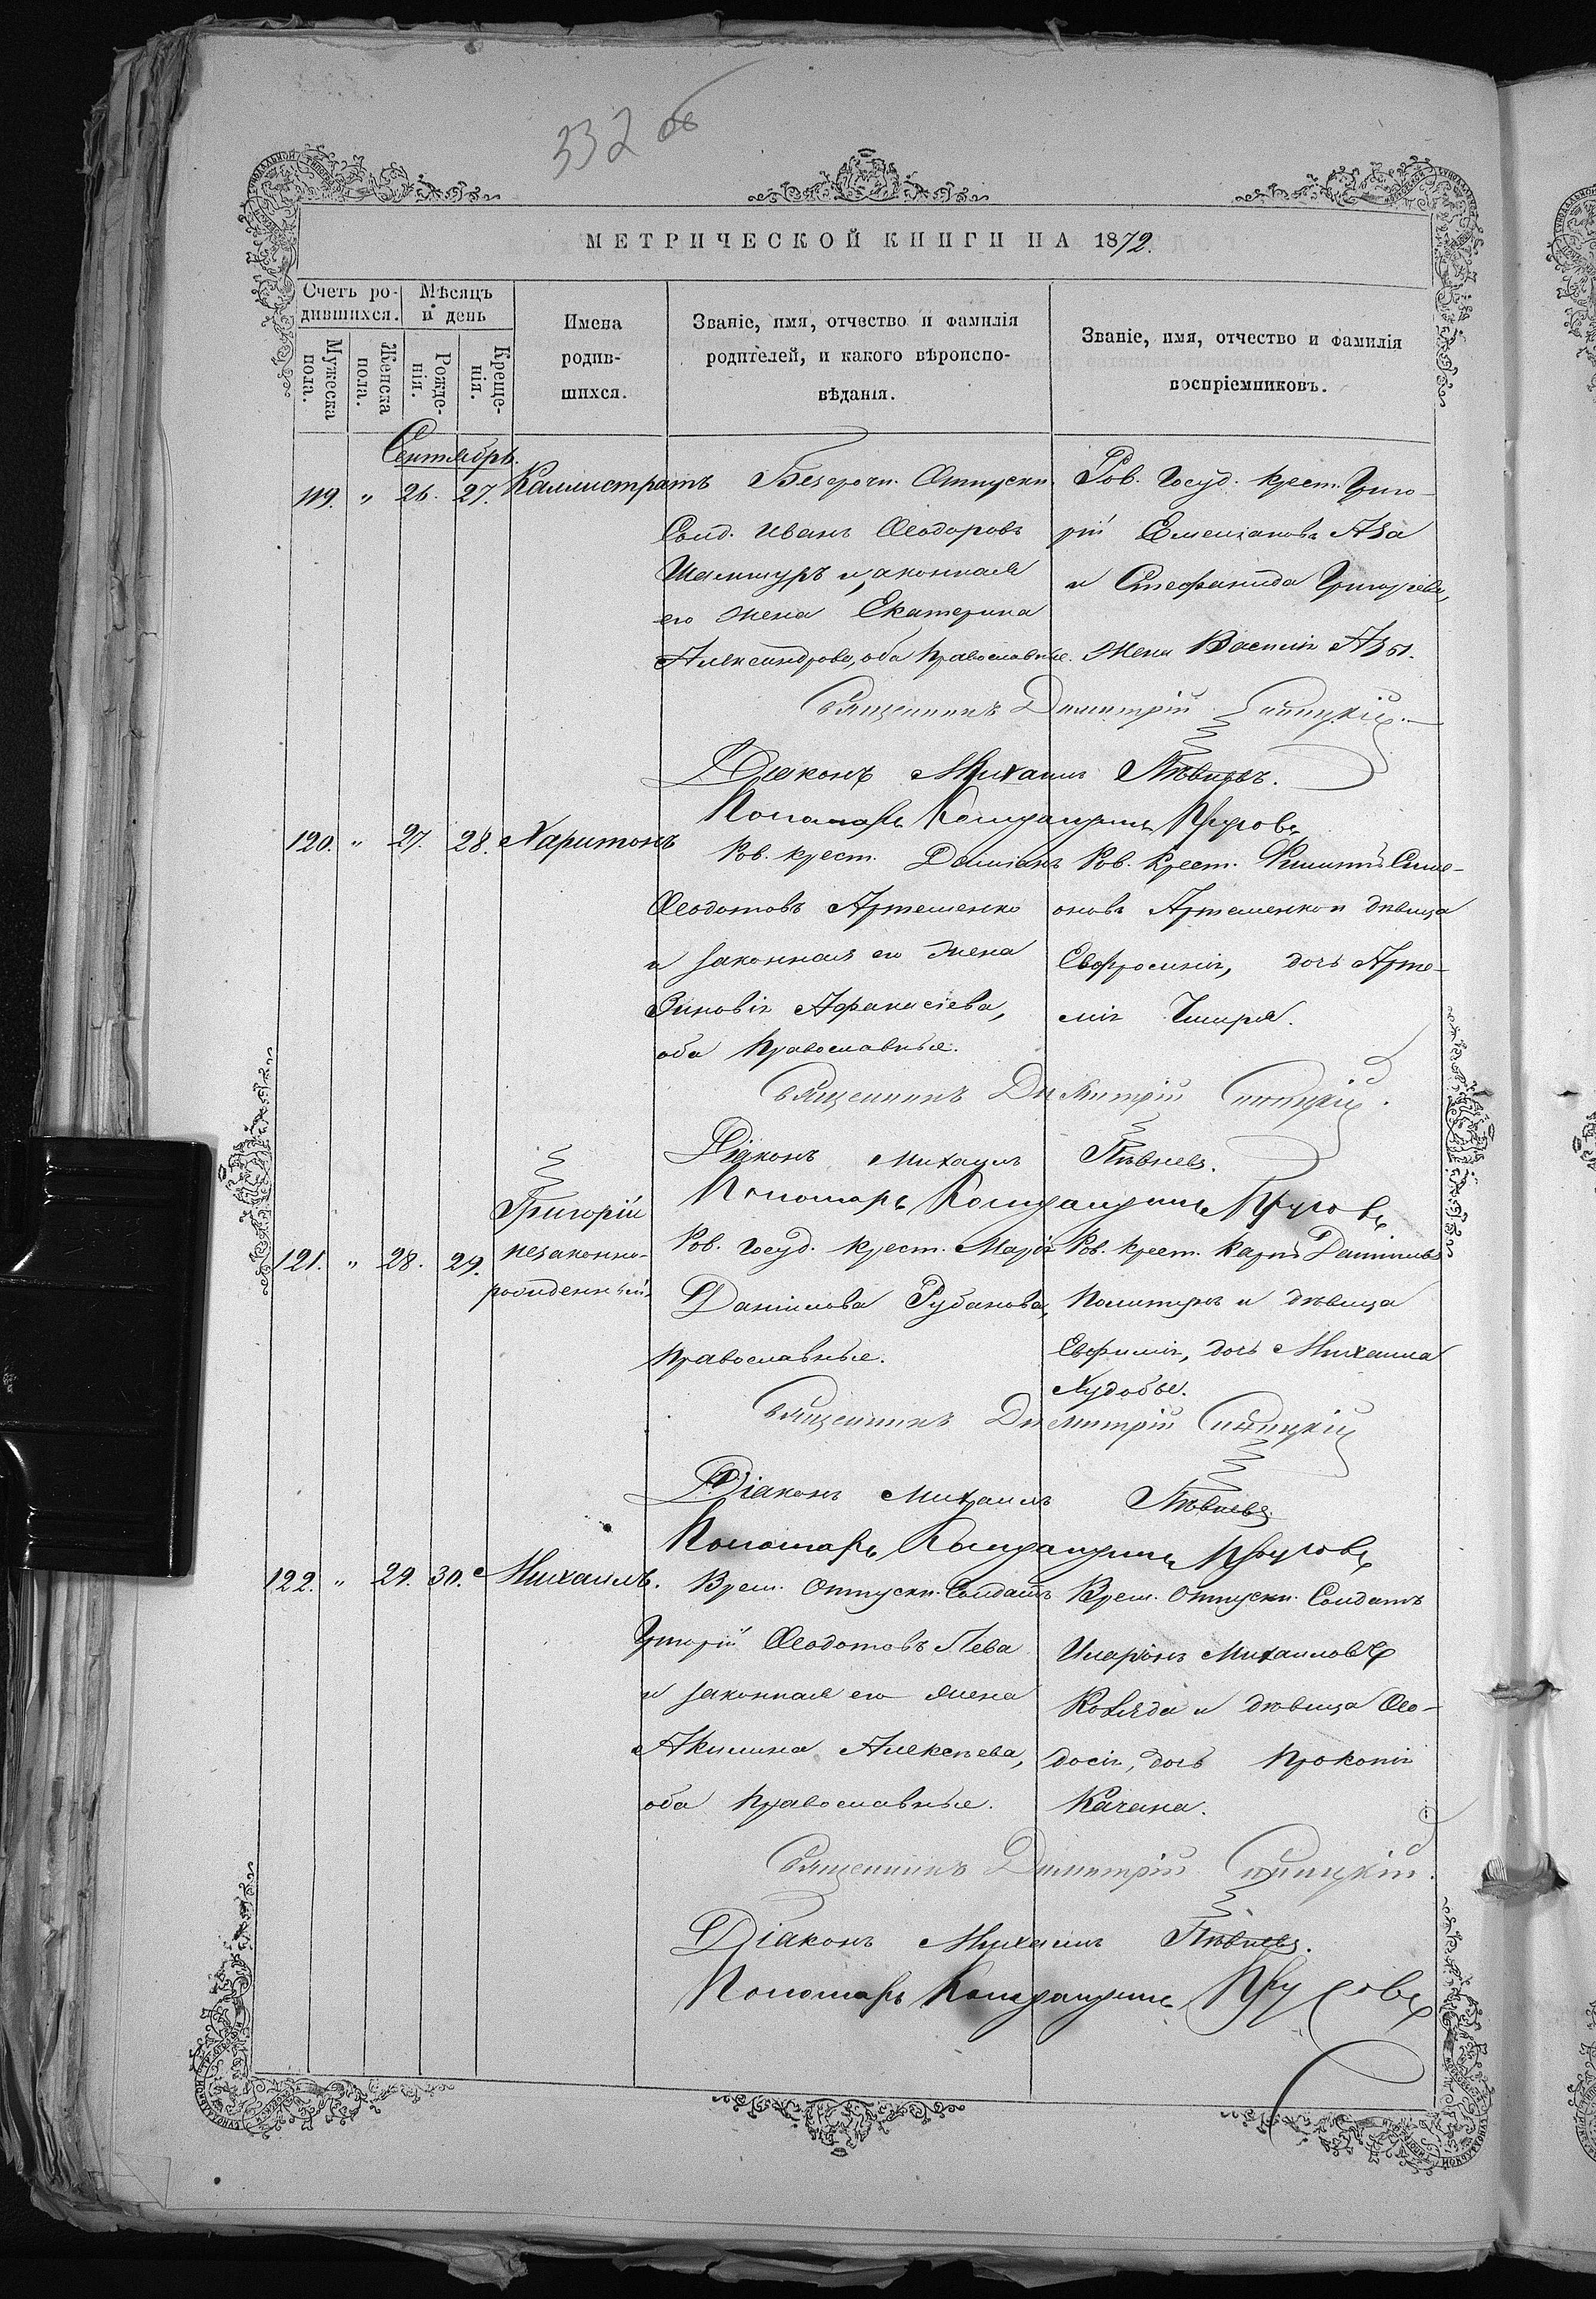 332 об
МЕТРИЧЕСКОЙ КНИГИ НА 1872.
Счетъ ро-
дившихся.
Мѣсяцъ
и день
Мужеска
пола.
Женска
пола.
Рожде-
нія.
Креще-
нія.
Имена
родив-
шихся.
Званіе, имя, отчество и фамилія
родителей, и какого вѣроиспо-
вѣданія.
Званіе, имя, отчество и фамилія
воспріемниковъ.
Сентябрь.
119. " 26. 27. Каллистратъ
Безсрочн. Отпускн.
Солд. Иванъ Ѳеодоровъ
и законная
его жена Екатерина
Александрова, оба Православные.
Ров. Госуд. Крест. Григо-
рій Емеліановъ Аза
и Стефанида Григоріева,
жена Василія Азы.
Священникъ Димитрій
Діаконъ Михаилъ Пѣвневъ.
Пономарь Константинъ
120. " 27. 28. Харитонъ
Ров. Крест. Даміанъ
Ѳеодотовъ Артеменко
и законная его жена
Зиновія Афанасіева,
оба Православные.
Ров. Крест. Филиппъ Симе-
оновъ Артеменко и дѣвица
Евфросинія, дочь Арте-
мія
Священникъ Димитрій
Діаконъ Михаилъ Пѣвневъ.
Пономарь Константинъ
121. " 28. 29.
Григорій
незаконно-
рожденный
Ров. Госуд. Крест. Марія
Даніилова Рубанова,
Православные.
Ров. Крест. Карпъ Даніиловъ
и дѣвица
Евфимія, дочь Михаила
Худобы.
Священникъ Димитрій
Діаконъ Михаилъ Пѣвневъ
Пономарь Константинъ
122. " 29. 30. Михаилъ.
Врем. Отпускн. Солдатъ
Григорій Ѳеодотовъ Лева
и законная его жена
Акилина Алексѣева,
оба Православные.
Врем. Отпускн. Солдатъ
Иларіонъ Михаиловъ
Коляда и дѣвица Ѳео-
досія, дочь Прокопія
Качана.
Священникъ Димитрій
Діаконъ Михаилъ Пѣвневъ.
Пономарь Константинъ